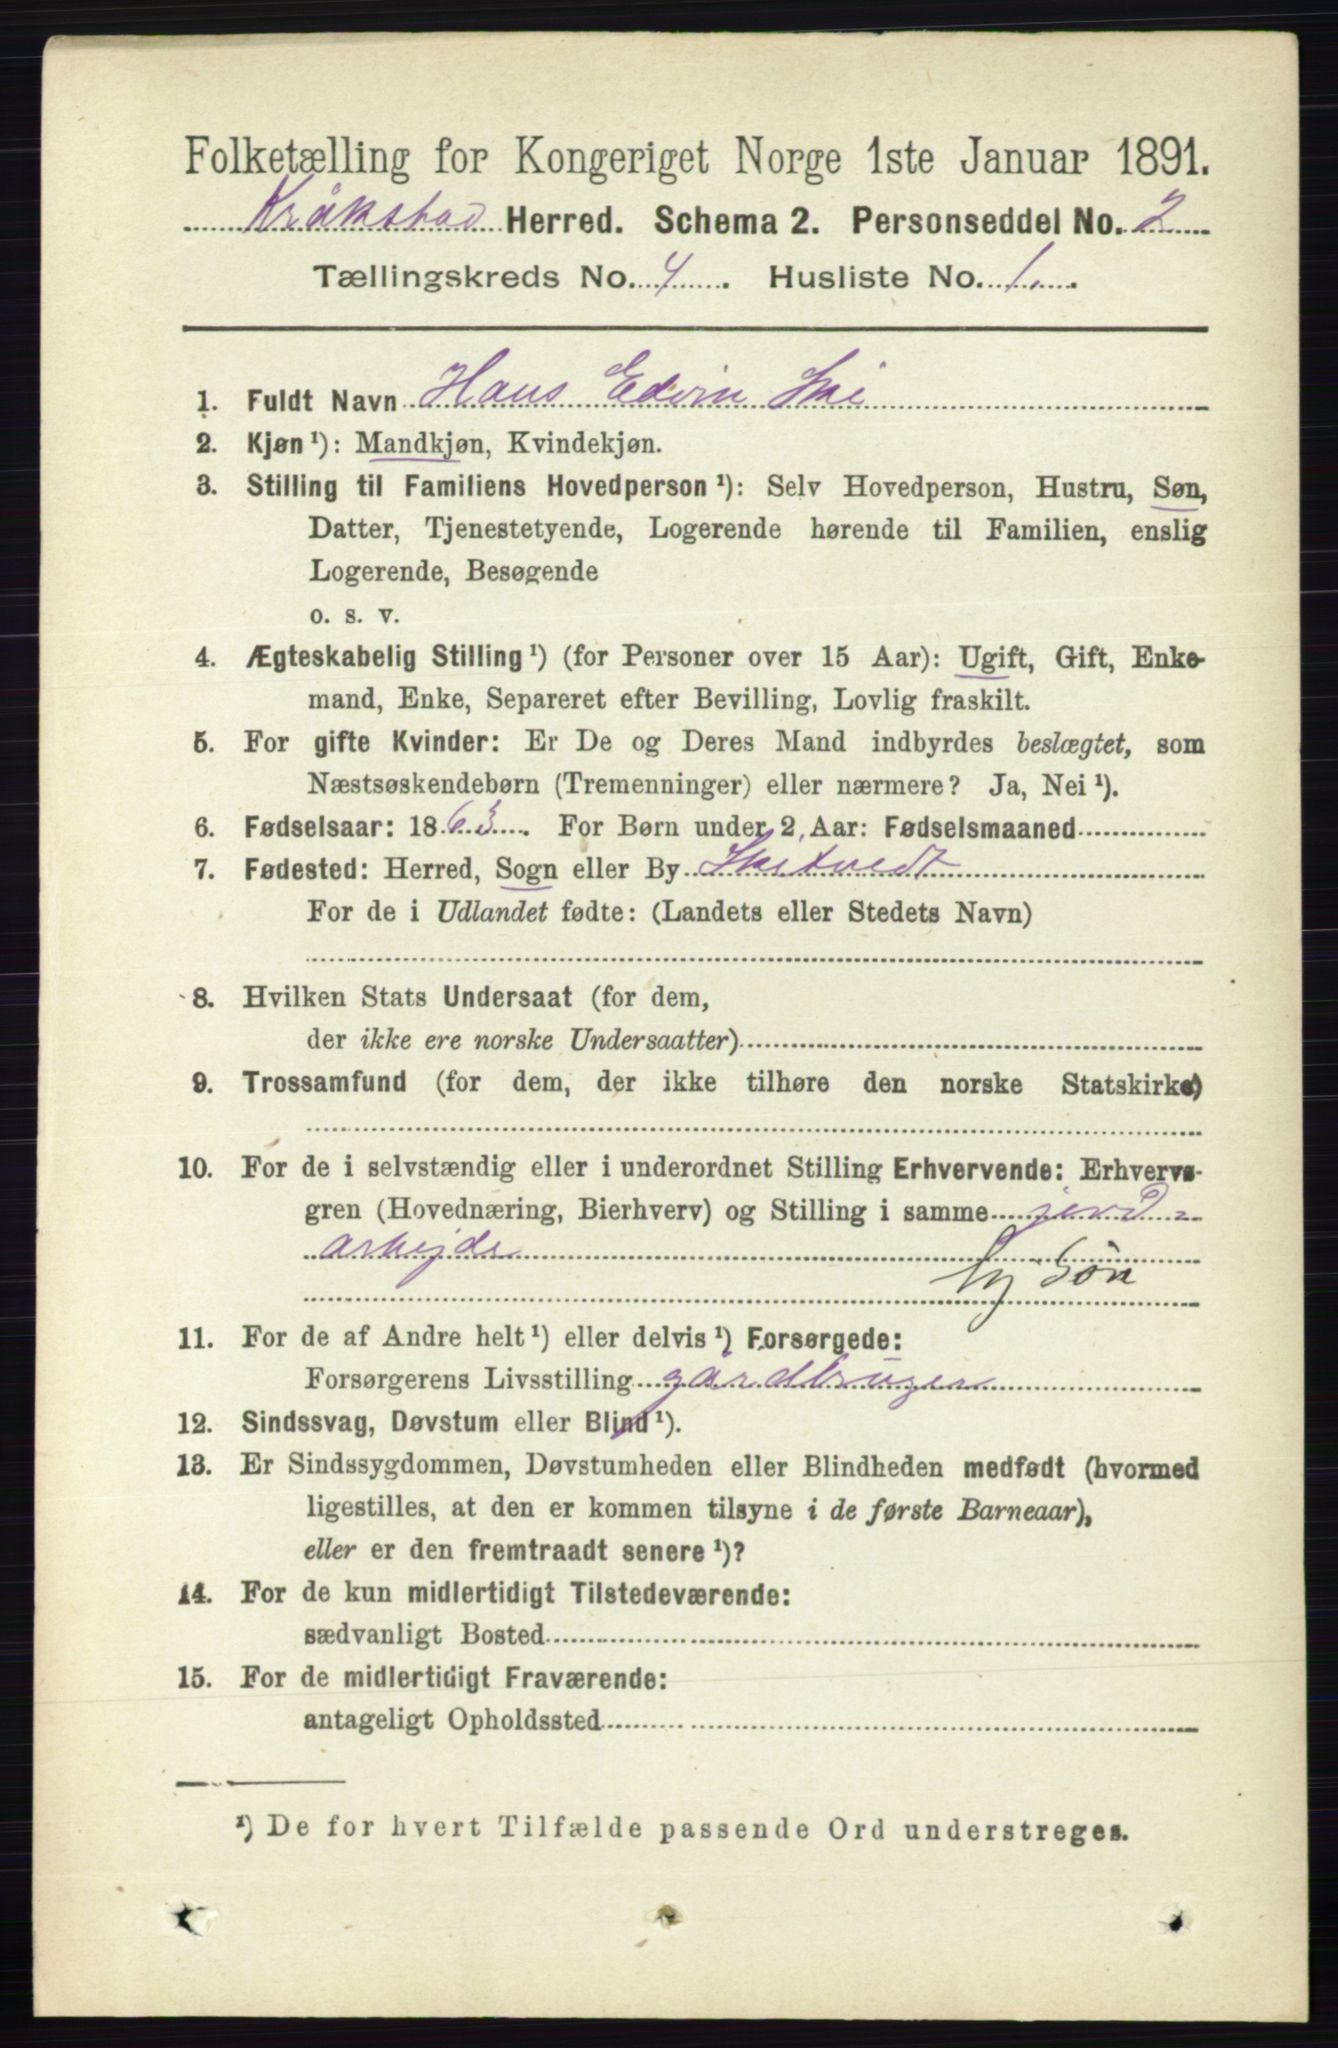 Folketælling for Kongeriget Norge 1ste Januar 1891.
Kråkstad Herred. Schema 2. Personseddel No. 2
Tællingskreds No. 4. Husliste No. 1.
1. Fuldt Navn Hans Edvin Ski
2. Kjøn ¹): Mandkjøn, Kvindekjøn.
3. Stilling til Familiens Hovedperson ¹): Selv Hovedperson, Hustru, Søn,
Datter, Tjenestetyende, Logerende hørende til Familien, enslig
Logerende, Besøgende
o. s. v.
4. Ægteskabelig Stilling ¹) (for Personer over 15 Aar): Ugift, Gift, Enke-
mand, Enke, Separeret efter Bevilling, Lovlig fraskilt.
5. For gifte Kvinder: Er De og Deres Mand indbyrdes beslægtet, som
Næstsøskendebørn (Tremenninger) eller nærmere? Ja, Nei ¹).
6. Fødselsaar: 1863. For Børn under 2 Aar: Fødselsmaaned
7. Fødested: Herred, Sogn eller By Skitvedt
For de i Udlandet fødte: (Landets eller Stedets Navn)
8. Hvilken Stats Undersaat (for dem,
der ikke ere norske Undersaatter)
9. Trossamfund (for dem, der ikke tilhøre den norske Statskirke)
10. For de i selvstændig eller i underordnet Stilling Erhvervende: Erhvervs-
gren (Hovednæring, Bierhverv) og Stilling i samme jord-
arbejde
Søn
11. For de af Andre helt ¹) eller delvis ¹) Forsørgede:
Forsørgerens Livsstilling gårdbruger
12. Sindssvag, Døvstum eller Blind ¹).
13. Er Sindssygdommen, Døvstumheden eller Blindheden medfødt (hvormed
ligestilles, at den er kommen tilsyne i de første Barneaar),
eller er den fremtraadt senere ¹)?
14. For de kun midlertidigt Tilstedeværende:
sædvanligt Bosted
15. For de midlertidigt Fraværende:
antageligt Opholdssted
¹) De for hvert Tilfælde passende Ord understreges.